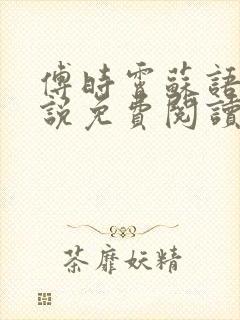 傅時霄蘇語
說免費閱讀
茶靡妖精